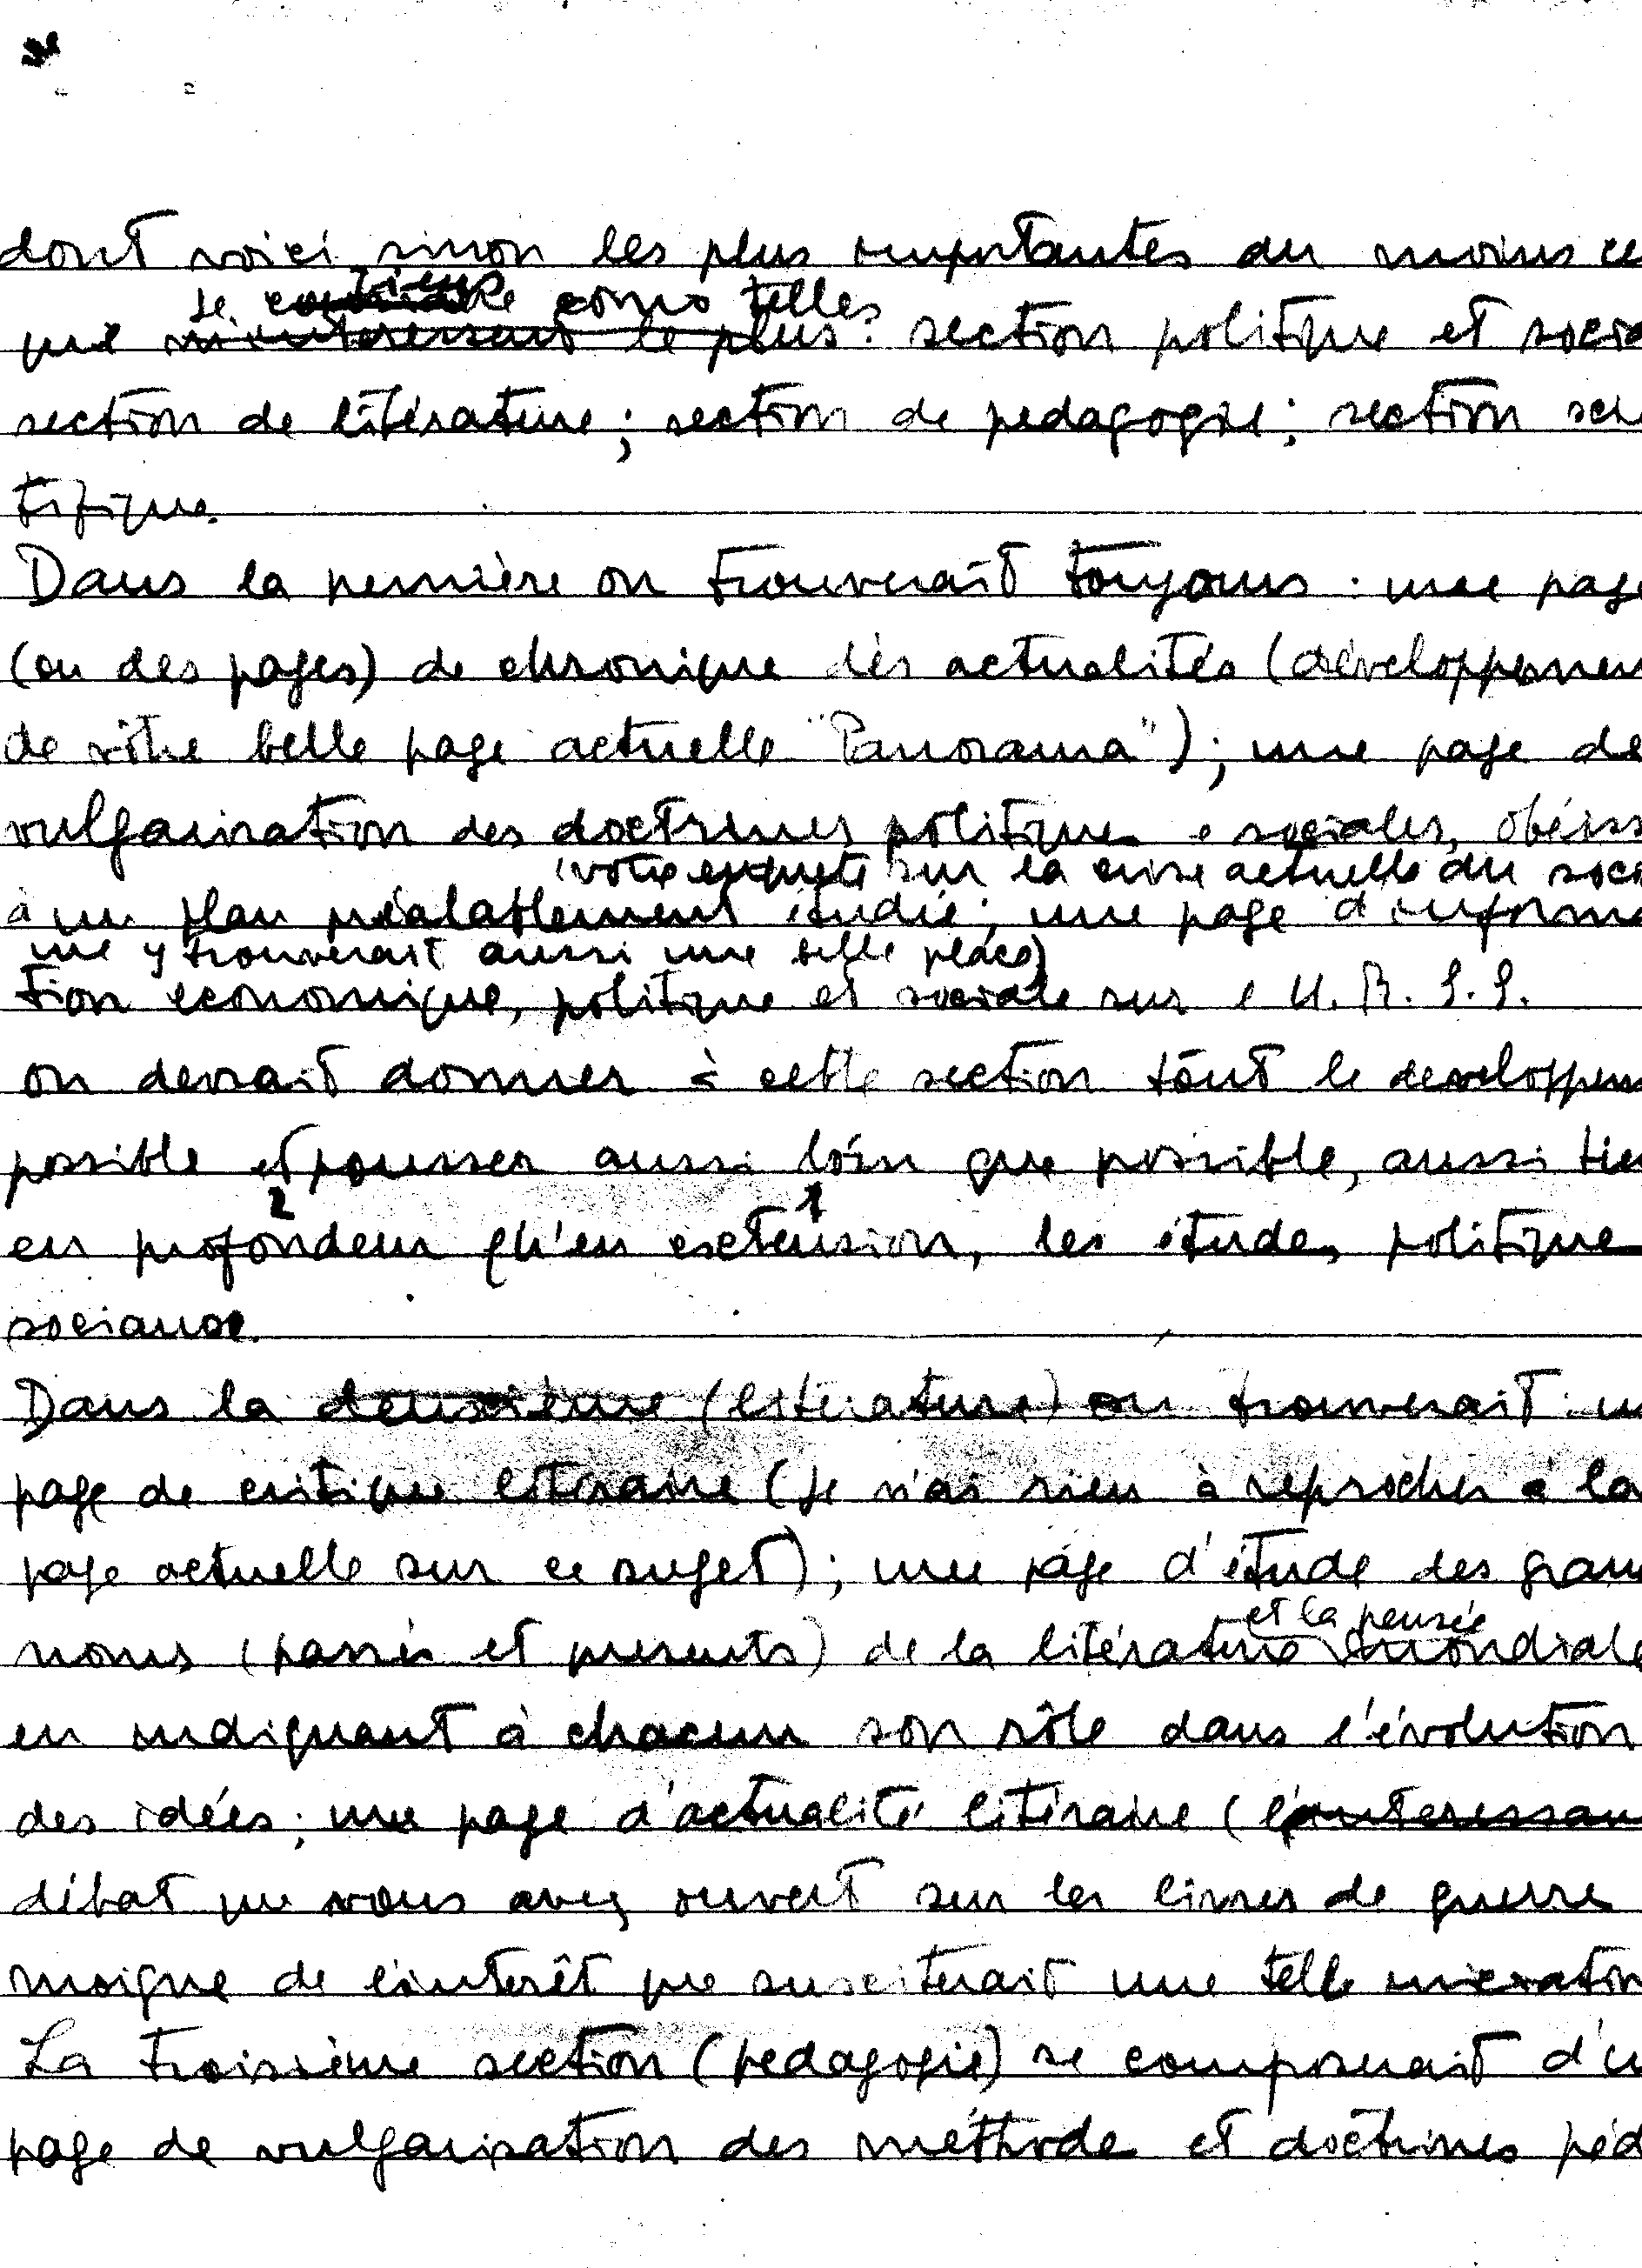 dont voici sinon les plus importantes du moins ce
je tiens como telles
que m'interessent le plus: section politique et socia
section de litérature; section de pedagogie; section scie
tifique.
Dans la permière on trouverait toujours: une page
(ou des pages) de chronique des actualités (développemen
de vôtre belle page actuelle "Panorama"); une page de
vulgarisation des doctrines politiques e sociales, obéiss
(votre enquete sur la crise actuelle du soci
à un plan préalablement étudié; une page d'informa
me y trouverait aussi une belle place)
tion economique, politique et sociale sur l'U.R.S.S.
on devrait donner à cette section tout le developpem
possible et pousser aussi loin que possible, aussi bien
2 1
en profondeur qu'en exctension, les études politique
sociaux.
Dans la deuxième (litérature) on trouverait: un
page de critique literaire (je n'ai rien à reprocher à la
page actuelle sur ce suget); une page d'étude des gran
et la pensée
noms (passés et presents) de la litérature mondiale
en indiquant à chacun son rôle dans l'évolution
des idées; une page d'actualité litéraire (l'interessan
débat que vous avez ouvert sur les livres de guerre
moigne de l'interêt que susciterait une telle
La troisième section (pedagogie) se composerait d'u
page de vulgarisation des méthode et doctrines péd